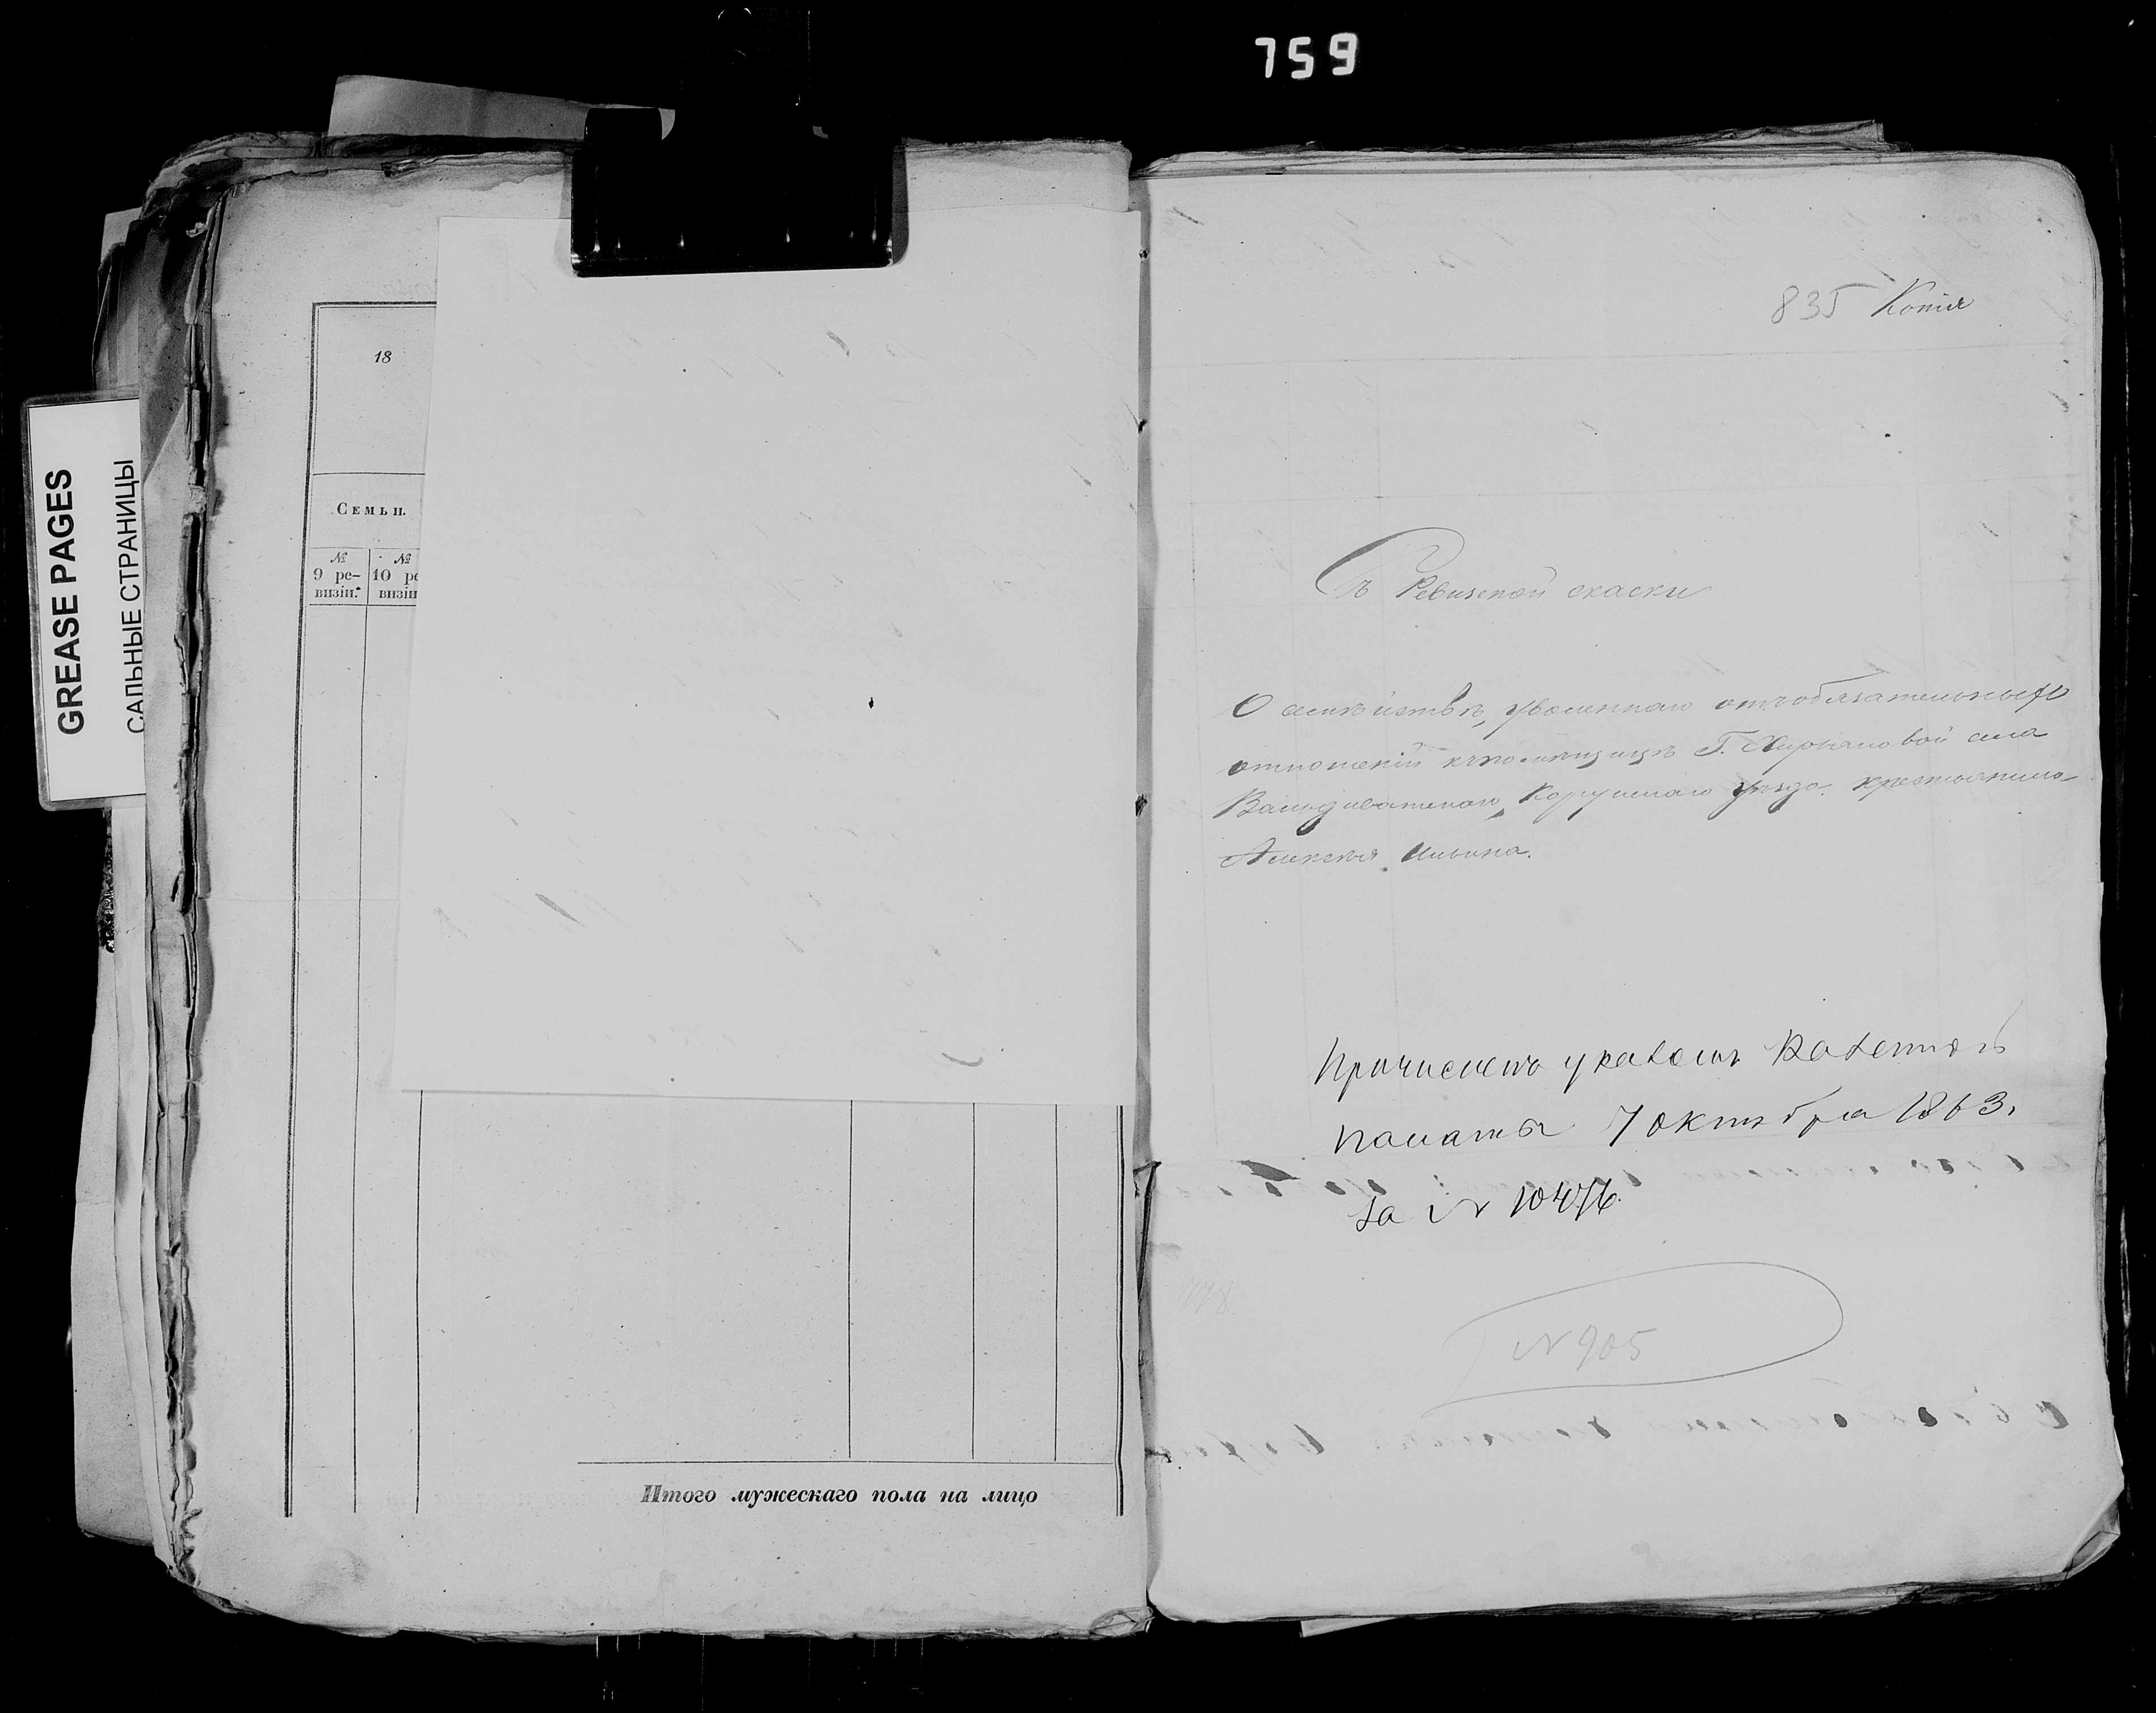 759
GREASE PAGES
САЛЬНЫЕ СТРАНИЦЫ
18
Семьи.
№ 9 ре-визіи.
№ 10 ре визіи
Итого мужескаго пола на лицо
835 Копія
Съ Ревизской скаски
О семействѣ, уволеннаго отъ обязательныхъ
отношеній къ помѣщицѣ Г. села
Карсунскаго уѣзда крестьянина
Алексѣя Ильина.
Причисленъ указомъ Казенной
палаты 7 октября 1863.
За № 10476.
778
№ 905